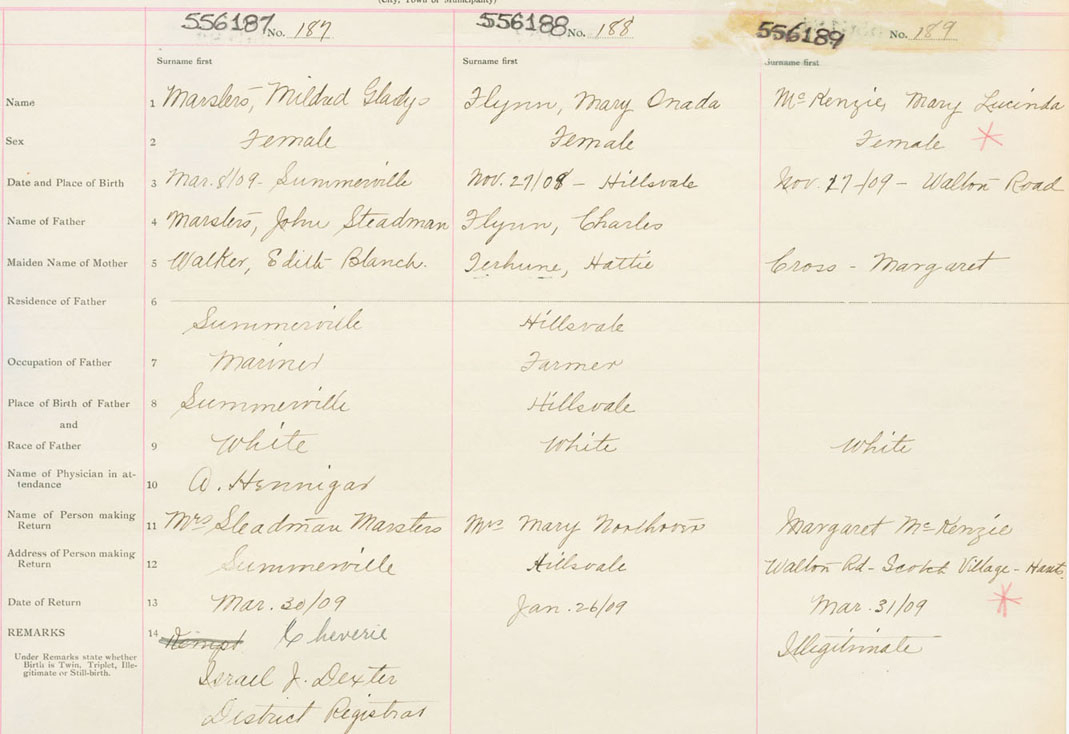 (City, Town or Municipality)
556187 No. 187 556188 No. 188 556189 No. 189
Surname first Surname first Surname first
Name 1 Marsters, Mildred Gladys Flynn, Mary Onada McKenzie, Mary Lucinda
Sex 2 Female Female Female
Date and Place of Birth 3 Mar. 8/09 - Summerville Nov. 27/08 - Hillsvale Nov. 27/09 - Walton Road
Name of Father 4 Marsters, John Steadman Flynn, Charles
Maiden Name of Mother 5 Walker, Edith Blanch. Terhune, Hattie Cross - Margaret
Residence of Father 6
Summerville Hillsvale
Occupation of Father 7 Mariner Farmer
Place of Birth of Father 8 Summerville Hillsvale
and
Race of Father 9 White White White
Name of Physician in at-
tendance 10 A. Hennigar
Name of Person making
Return 11 Mrs Steadman Marsters Mrs Mary Margaret McKenzie
Address of Person making
Return 12 Summerville Hillsvale Walton Rd - Scotch Village - Hants
Date of Return 13 Mar. 30/09 Jan. 26/09 Mar. 31/09
REMARKS 14 Cheverie Illegitimate
Under Remarks state whether
Birth is Twin, Triplet, Ille-
gitimate or Still-birth.
Israel J. Dexter
District Registrar